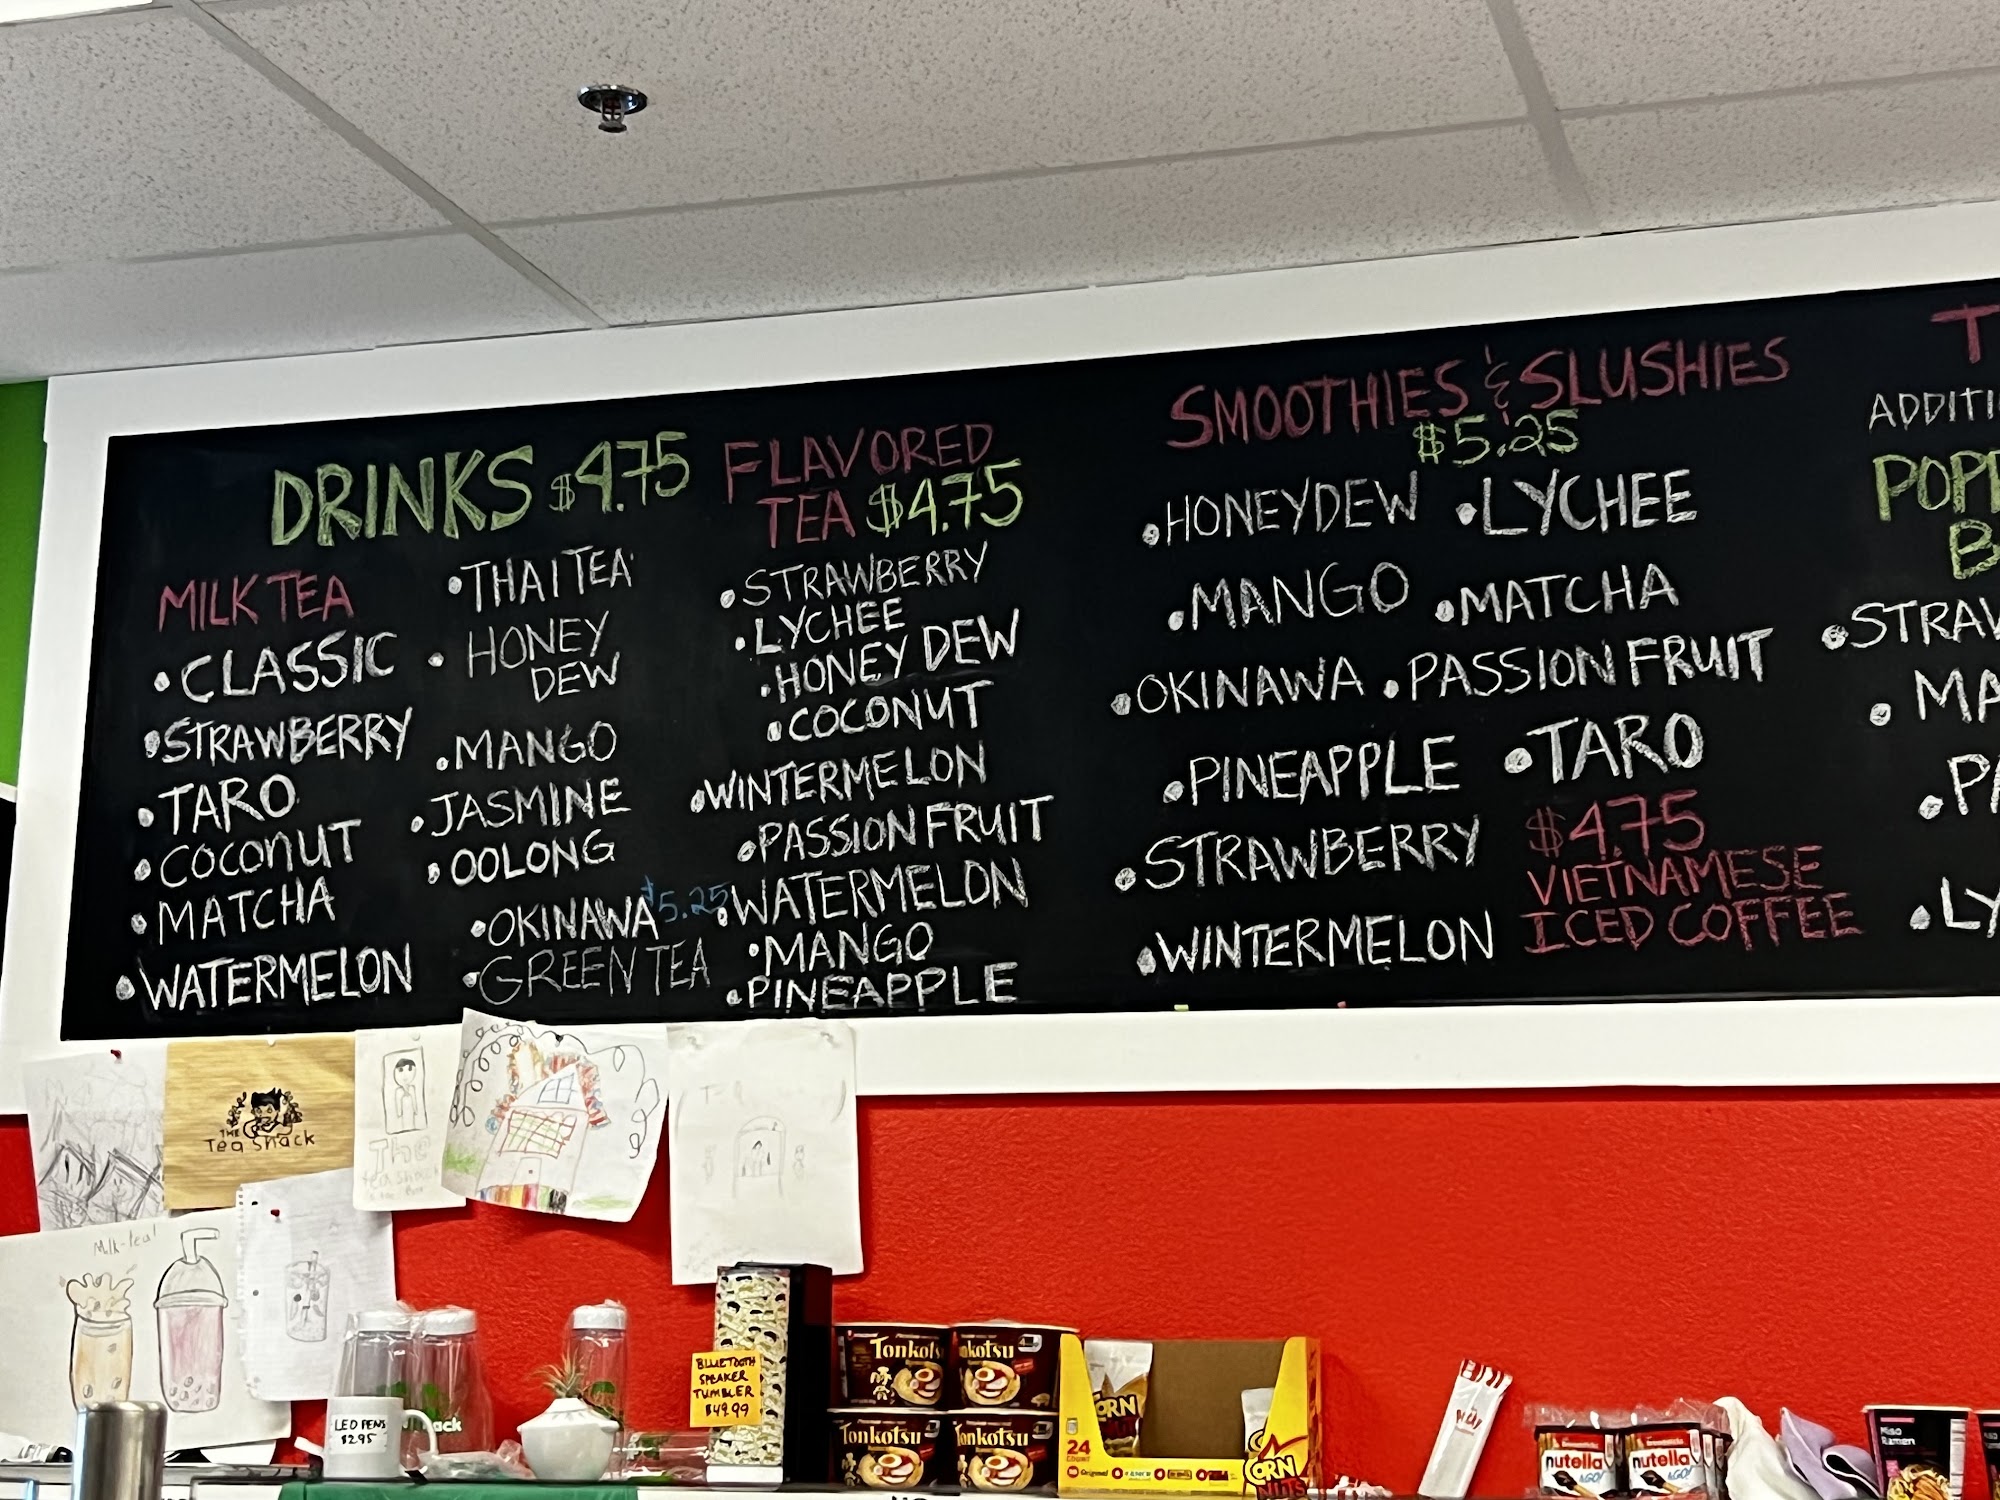 DRINKS $4.75
MILK TEA
• CLASSIC
• STRAWBERRY
• TARO
• COCONUT
• MATCHA
• WATERMELON
• THAI TEA
• HONEY
DEW
• MANGO
• JASMINE
• OOLONG
• OKINAWA $5.25
• GREEN TEA
FLAVORED
TEA $4.75
• STRAWBERRY
• LYCHEE
• HONEY DEW
• COCONUT
• WINTERMELON
• PASSION FRUIT
• WATERMELON
• MANGO
• PINEAPPLE
SMOOTHIES & SLUSHIES
$5.25
• HONEYDEW • LYCHEE
• MANGO • MATCHA
• OKINAWA • PASSION FRUIT
• PINEAPPLE • TARO
• STRAWBERRY
• WINTERMELON
$4.75
VIETNAMESE
ICED COFFEE
T
ADDITI
POP
B
• STRAW
• MA
• PA
• LY
THE
Tea Shack
The
tea shack
Milk-tea!
LED PENS
$2.95
ack
BLUETOOTH
SPEAKER
TUMBLER
$49.99
Tonkotsu
Tonkotsu
Tonkotsu
Tonkotsu
CORN
24
Original
CORN
NUTS
nutella
&GO!
nutella
&GO!
Miso
Ramen